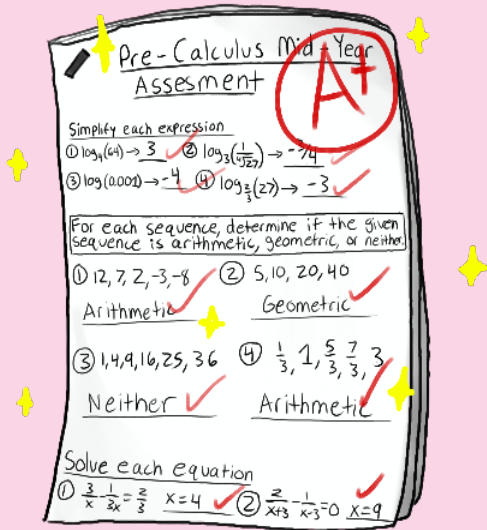 Pre-Calculus Mid-Year
Assesment
A+
Simplify each expression
① log₄(64) → 3 ② log₃(1/∜27) → -3/4
③ log(0.001) → -4 ④ log⅔(27) → -3
For each sequence, determine if the given
sequence is arithmetic, geometric, or neither.
① 12, 7, 2, -3, -8 ② 5, 10, 20, 40
Arithmetic Geometric
③ 1, 4, 9, 16, 25, 36 ④ 1/3, 1, 5/3, 7/3, 3
Neither Arithmetic
Solve each equation
① 3/x - 1/3x = 2/3 x=4 ② 2/x+3 - 1/x-3 = 0 x=9